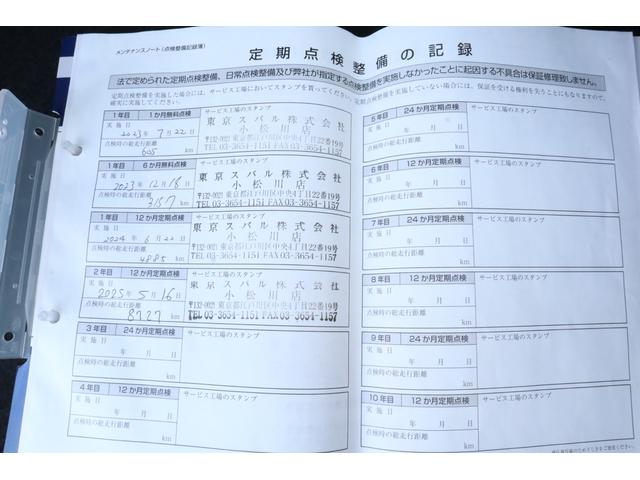 メンテナンスノート(点検整備記録簿)
定期点検整備の記録
法で定められた定期点検整備、日常点検整備及び弊社が指定する点検整備を実施しなかったことに起因する不具合は保証修理致しません。
定期点検整備を実施した場合には、サービス工場においてスタンプを貰ってください。定期点検整備を実施していない場合には、保証を受ける権利を失うことにもなりますので、
確実に実施してください。
1年目 1か月無料点検 サービス工場のスタンプ
実施日
2023年7月22日
点検時の総走行距離
605 km
東京スバル株式会社
小松川店
〒132-0021 東京都江戸川区中央4丁目22番19号
TEL 03-3654-1151 FAX 03-3654-1157
1年目 6か月無料点検 サービス工場のスタンプ
実施日
2023年12月18日
点検時の総走行距離
3187 km
東京スバル株式会社
小松川店
〒132-0021 東京都江戸川区中央4丁目22番19号
TEL 03-3654-1151 FAX 03-3654-1157
1年目 12か月定期点検 サービス工場のスタンプ
実施日
2024年6月22日
点検時の総走行距離
4885 km
東京スバル株式会社
小松川店
〒132-0021 東京都江戸川区中央4丁目22番19号
TEL 03-3654-1151 FAX 03-3654-1157
2年目 12か月定期点検 サービス工場のスタンプ
実施日
2025年5月16日
点検時の総走行距離
8727 km
東京スバル株式会社
小松川店
〒132-0021 東京都江戸川区中央4丁目22番19号
TEL 03-3654-1151 FAX 03-3654-1157
3年目 24か月定期点検 サービス工場のスタンプ
実施日
年 月 日
点検時の総走行距離
km
4年目 12か月定期点検 サービス工場のスタンプ
実施日
年 月 日
点検時の総走行距離
km
5年目 24か月定期点検 サービス工場のスタンプ
実施日
年 月 日
点検時の総走行距離
km
6年目 12か月定期点検 サービス工場のスタンプ
実施日
年 月 日
点検時の総走行距離
km
7年目 24か月定期点検 サービス工場のスタンプ
実施日
年 月 日
点検時の総走行距離
km
8年目 12か月定期点検 サービス工場のスタンプ
実施日
年 月 日
点検時の総走行距離
km
9年目 24か月定期点検 サービス工場のスタンプ
実施日
年 月 日
点検時の総走行距離
km
10年目 12か月定期点検 サービス工場のスタンプ
実施日
年 月 日
点検時の総走行距離
km